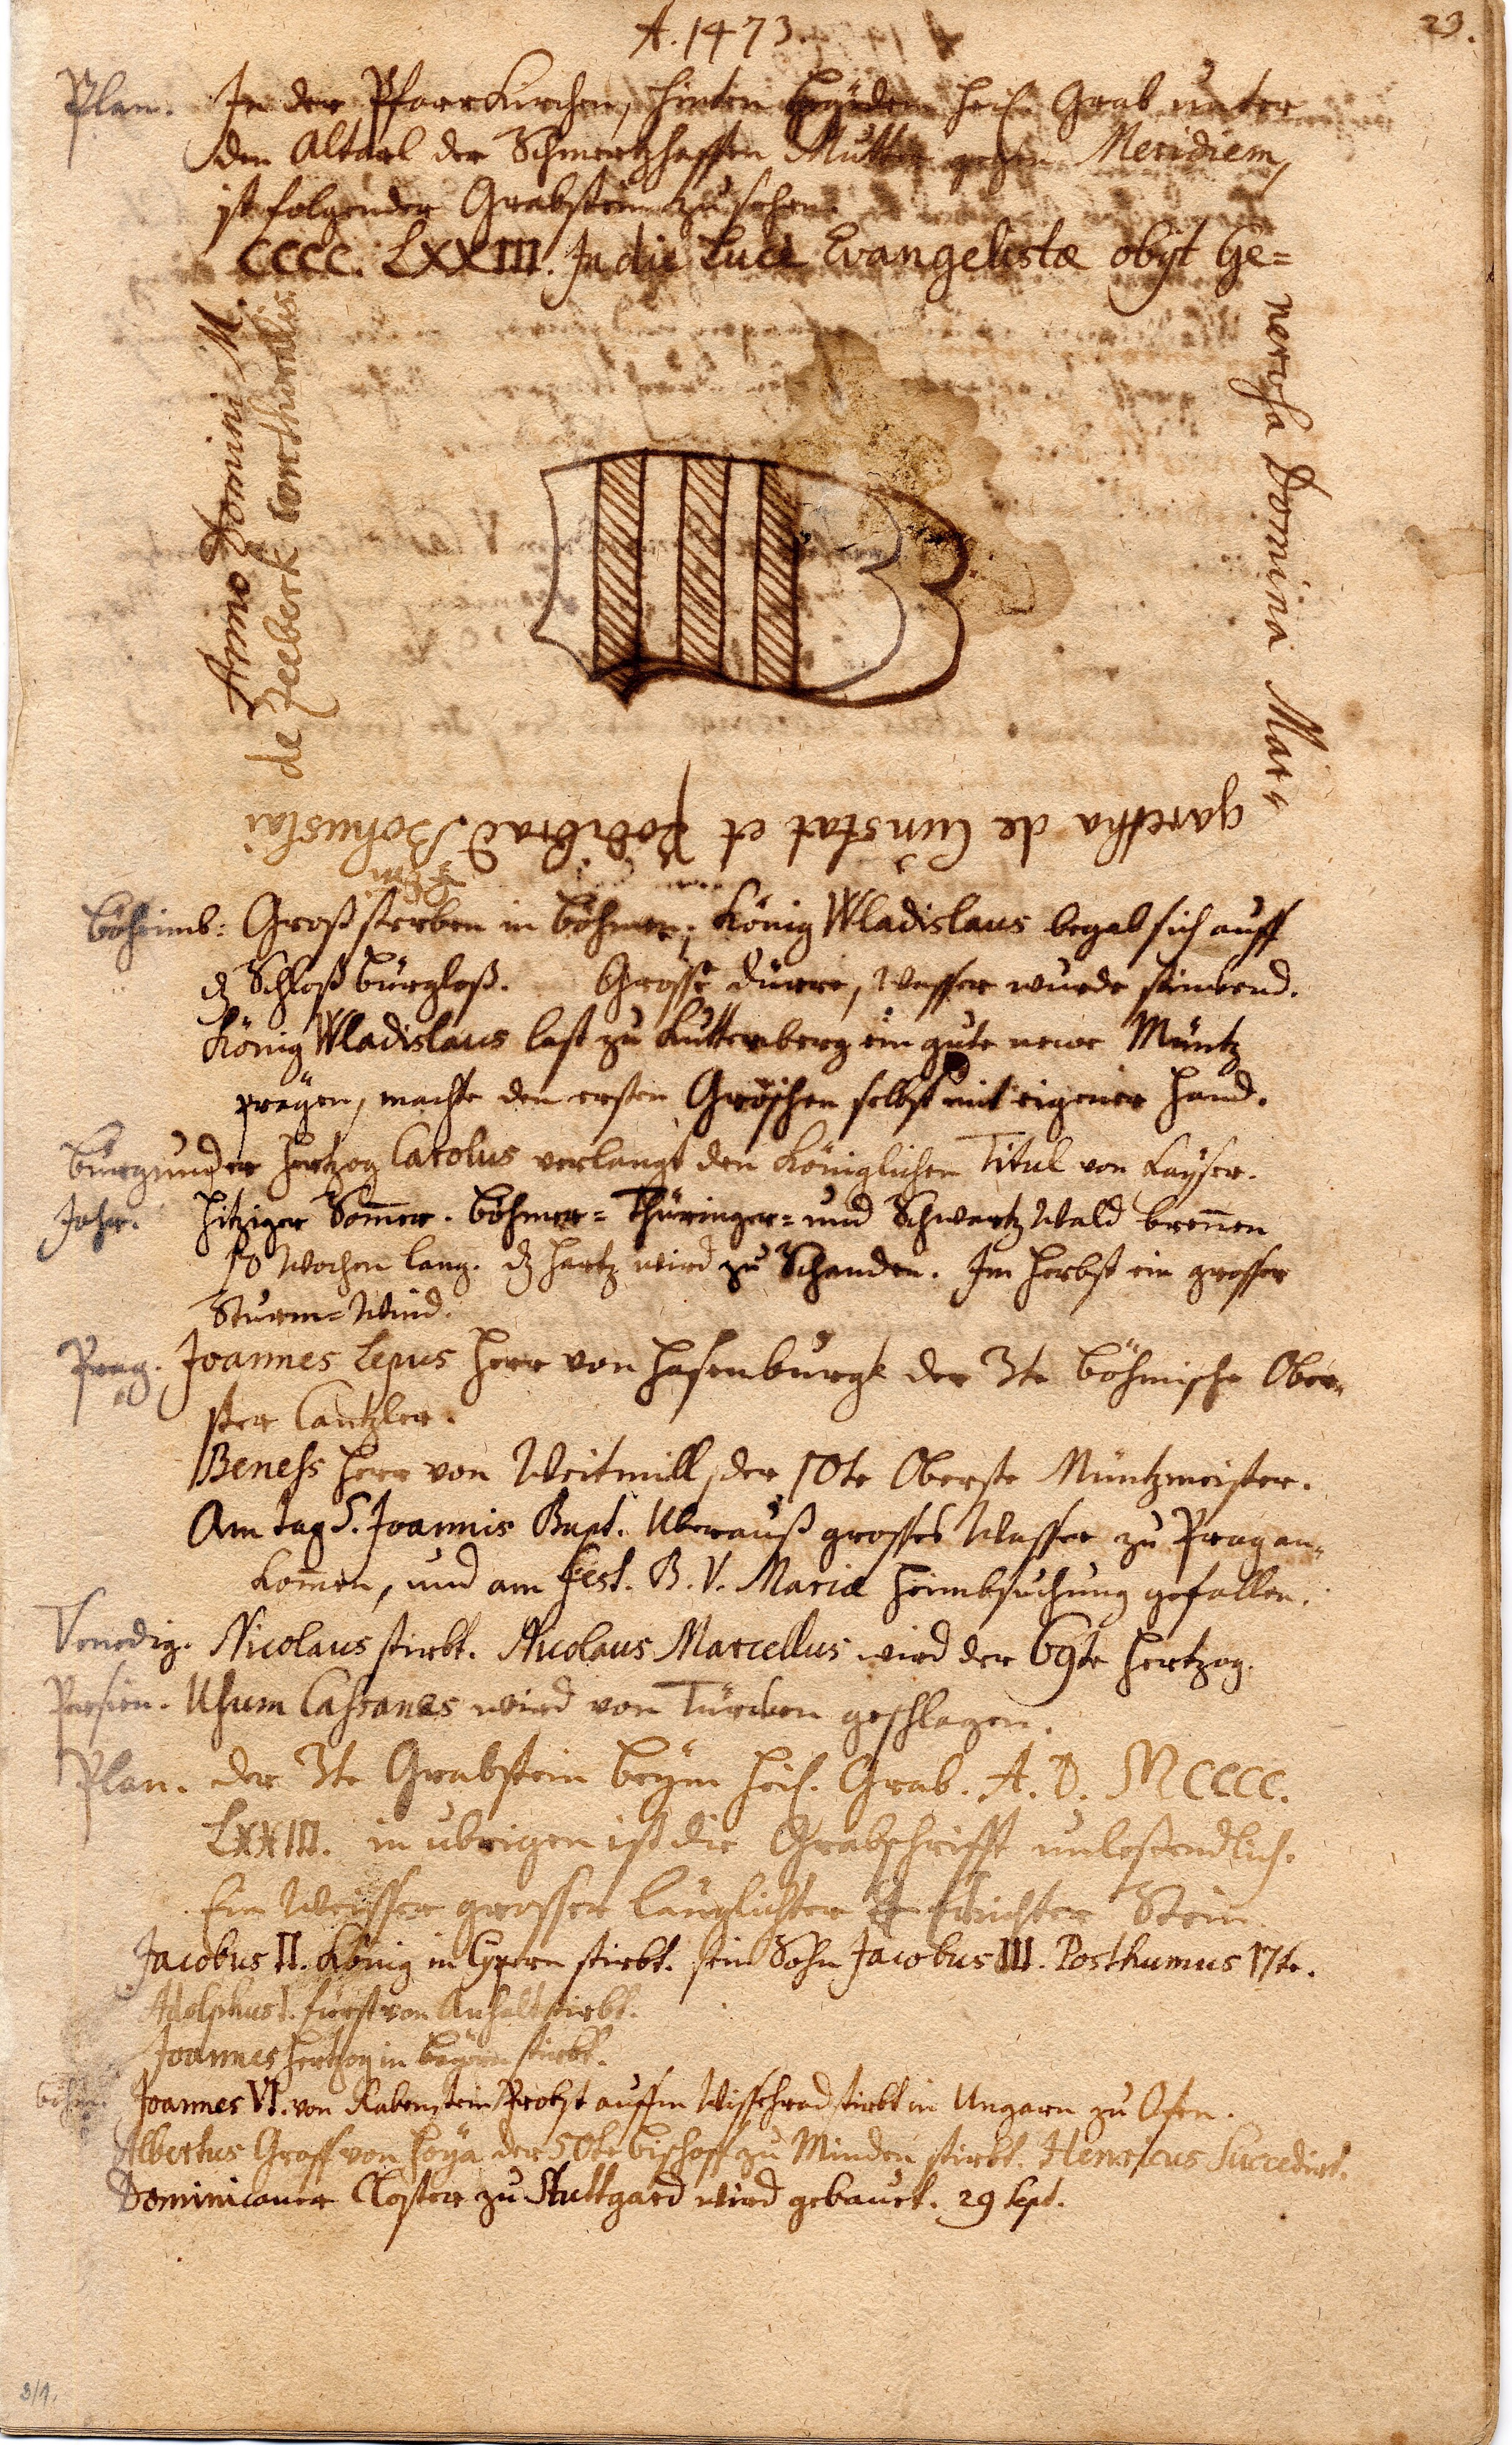 A. 1473.
23.
Plan. In der Pfarrkirchen, hinten beÿden heil. Grab unter
den Altarl der Schmertzhafften Mutter gegen Meridiem,
ist folgender Grabstein zu sehen.
CCCC. LXXIII. In die Luce Evangelistæ obijt Ge=
nerosa Domina Mar=
garetha de Cunstat et Podiebrad Bohuslai
de Zeeberk conthoralis.
Anno Domini M
Böheimb: Groß sterben in Böhmen, König Wladislaus begab sich auff
dz Schloß Bürgleß. Grosse dürre, Wasser wurde stinckend.
König Wladislaus last zu Kuttenberg ein gute newe Müntz
prägen, machte den ersten Gröschen selbst mit eigener Hand.
Burgunder Hertzog Carolus verlangt den Königlichen Titul von Kaÿser.
Jahr. Hitziger Som̄er. Böhmer= Thüringer= und Schwartz Wald bren̄en
10 Wochen lang. dz Hartz wird zu Schanden. Im Herbst ein grosser
Sturm=Wind.
Prag. Joannes Lepus Herr von Hasenburgk der 3te Böhmische Ober=
ster Cantzler.
Beness Herr von Weitmill, der 10te Oberste Müntzmeister.
Am Tag S. Joannis Bapt. Uberauß grosses Wasser zu Prag an=
kom̄en, und am Fest. B. V. Mariæ Heimbsuchung gefallen.
Venedig. Nicolaus stirbt. Nicolaus Marcellus wird der 69te Hertzog.
Persien. Usum Cassanes wird von Türcken geschlagen.
Plan. der 3te Grabstein beÿm heil. Grab. A. D. MCCCC.
LXXIII. in ubrigen ist die Grabschrifft unlesendlich.
Ein Weisser grosser länglichter Stein.
Jacobus II. König in Cypern stirbt. sein Sohn Jacobus III. Posthumus 17te.
Adolphus I. Fürst von Anhalt stirbt.
Joannes Hertzog in Baÿern stirbt.
Böhm. Joannes VI. von Rabenstein Probst auffm Wissehrad stirbt in Ungarn zu Ofen.
Albertus Graff von Hoÿa der 50te Bischoff zu Minden stirbt. Henricus Succedirt.
Dominicaner Closter zu Stuttgard wird gebauet. 29 Sept.
3/1.